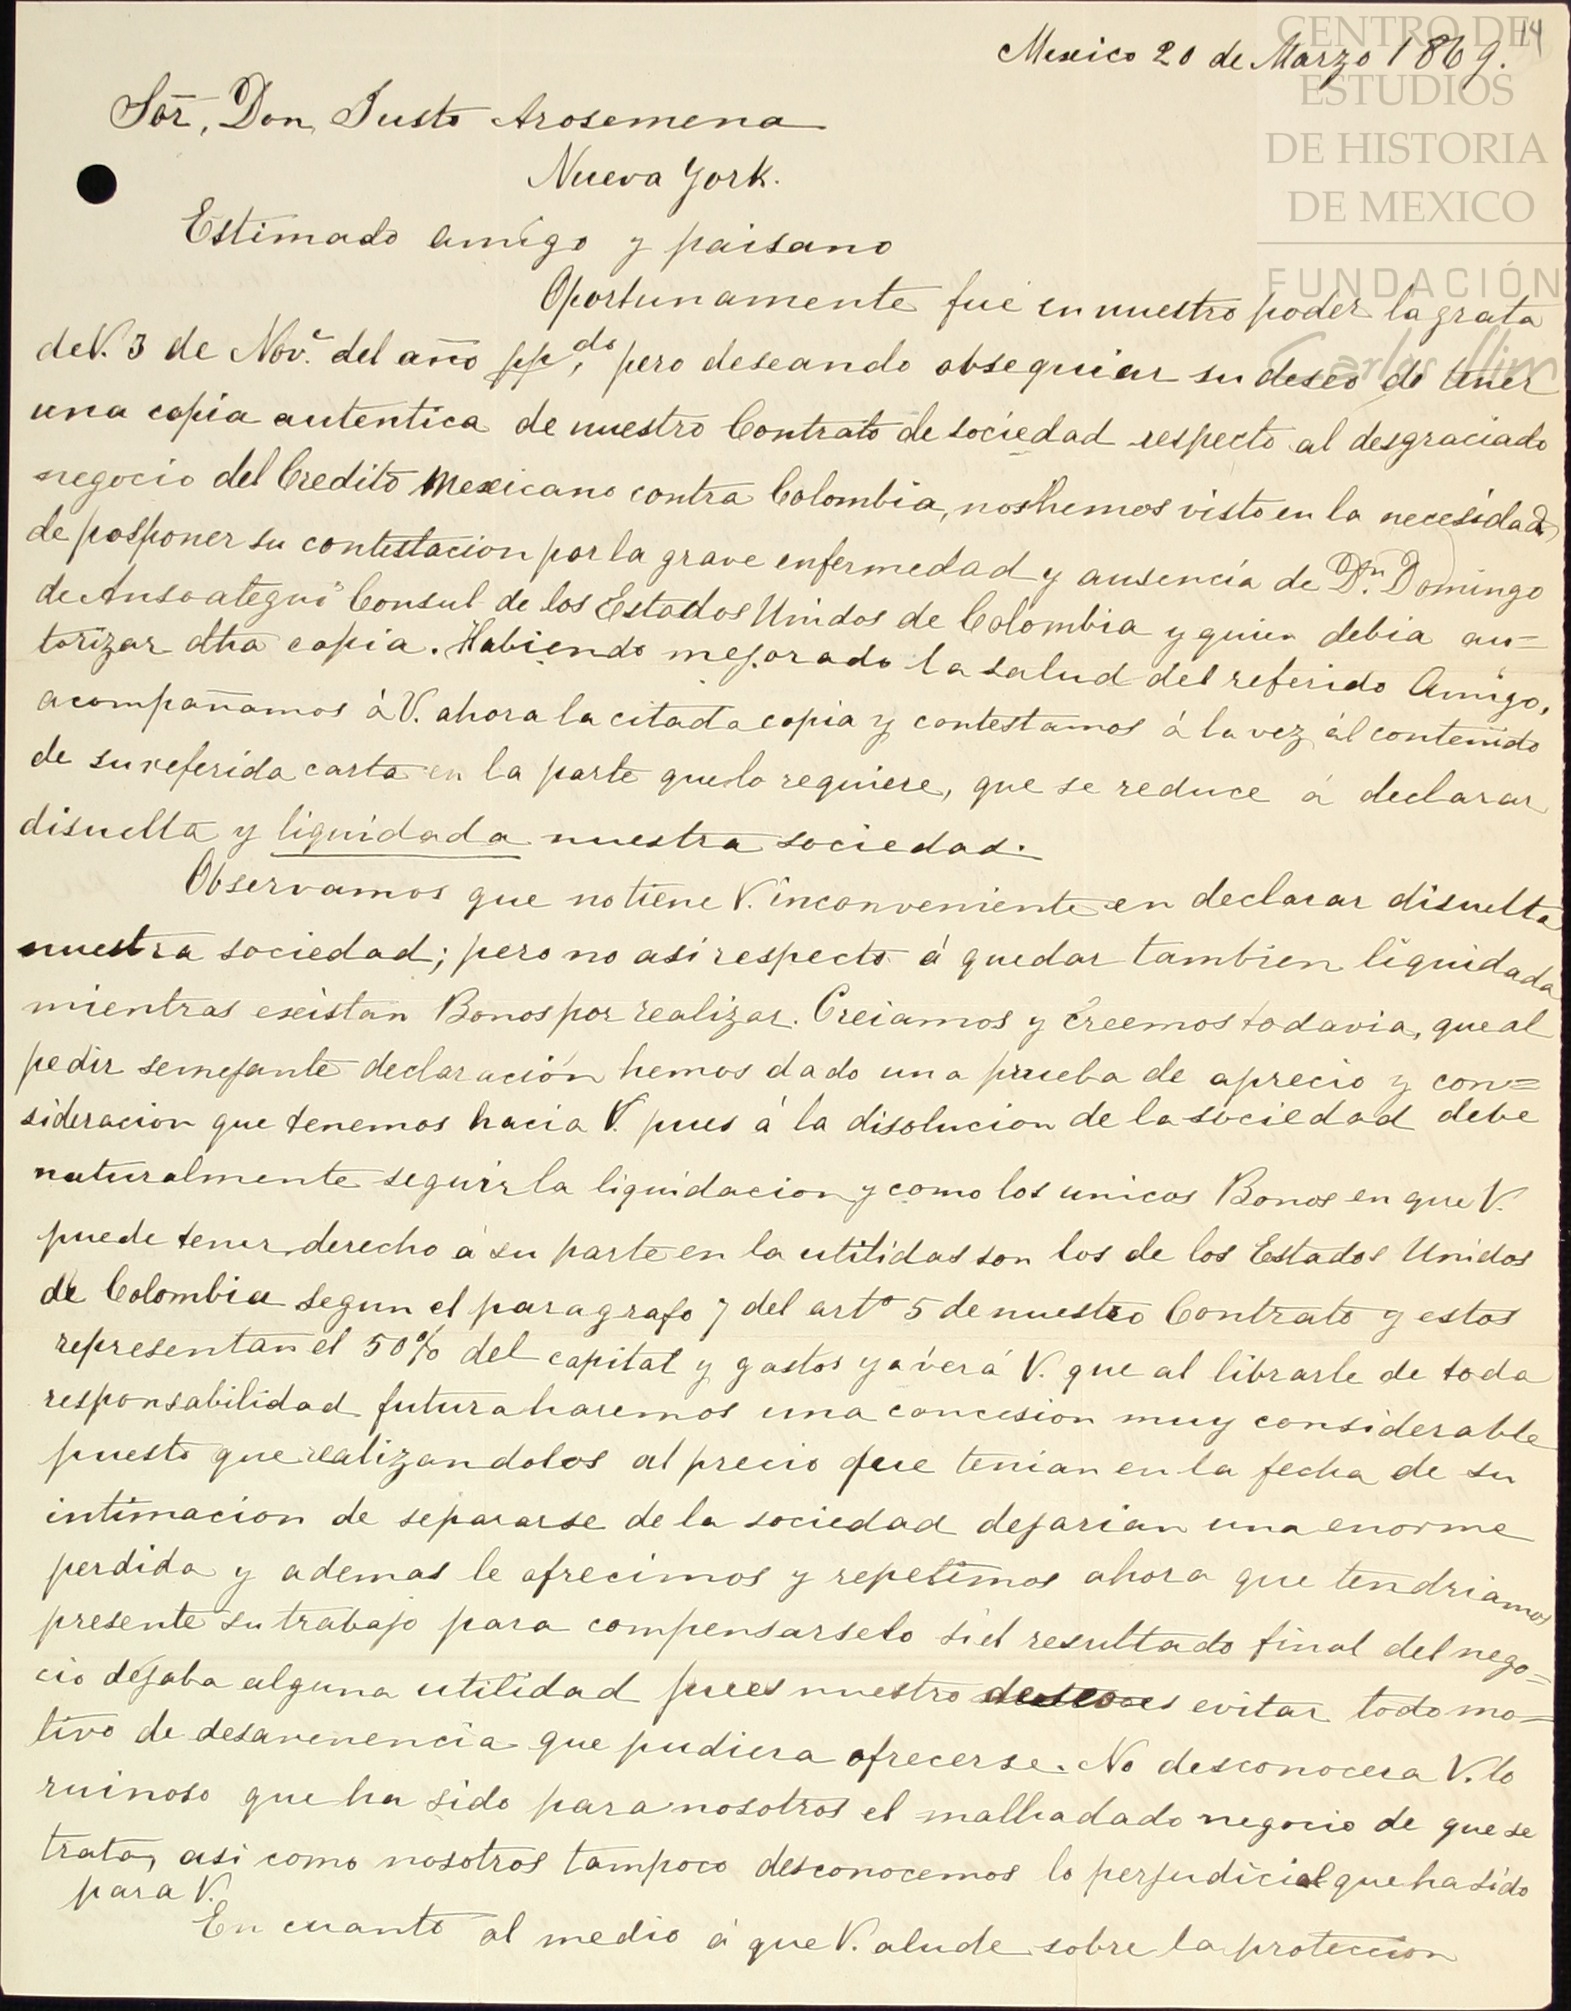 14
Mexico 20 de Marzo 1869.
CENTRO DE
ESTUDIOS
DE HISTORIA
DE MEXICO
FUNDACIÓN
Carlos Slim
Sor̄, Don, Justo Arosemena
Nueva York.
Estimado amigo y paisano
Oportunamente fué en nuestro poder la grata
de V. 3 de Nov.e del año pp.do, pero deseando obsequiar su deseo de tener
una copia autentica de nuestro Contrato de sociedad respecto al desgraciado
negocio del Credito Mexicano contra Colombia, nos hemos visto en la necesidad
de posponer su contestacion por la grave enfermedad y ausencia de Dn. Domingo
de Ansoategui Consul de los Estados Unidos de Colombia y quien debia au=
torizar dha copia. Habiendo mejorado la salud del referido Amigo,
acompañamos á V. ahora la citada copia y contestamos á la vez ál contenido
de su referida carta en la parte que lo requiere, que se reduce á declarar
disuelta y liquidada nuestra sociedad.
Observamos que no tiene V. inconveniente en declarar disuelta
nuestra sociedad; pero no asi respecto á quedar tambien liquidada
mientras existan Bonos por realizar. Creiamos y creemos todavia, que al
pedir semejante declaración hemos dado una prueba de aprecio y con=
sideracion que tenemos hacia V. pues á la disolucion de la sociedad debe
naturalmente seguir la liquidacion y como los unicos Bonos en que V.
puede tener derecho á su parte en la utilidas son los de los Estados Unidos
de Colombia segun el paragrafo 7 del arto 5 de nuestro Contrato y estos
representan el 50% del capital y gastos ya verá V. que al librarle de toda
responsabilidad futura haremos una concesion muy considerable
puesto que realizandolos al precio que tenian en la fecha de su
intimacion de separarse de la sociedad dejarian una enorme
perdida y ademas le ofrecimos y repetimos ahora que tendriamos
presente su trabajo para compensarselo si el resultado final del nego=
cio dejaba alguna utilidad pues nuestro deseo es evitar todo mo=
tivo de desavenencia que pudiera ofrecerse. No desconocera V. lo
ruinoso que ha sido para nosotros el malhadado negocio de que se
trata, asi como nosotros tampoco desconocemos lo perjudicial que ha sido
para V.
En cuanto al medio á que V. alude sobre la proteccion